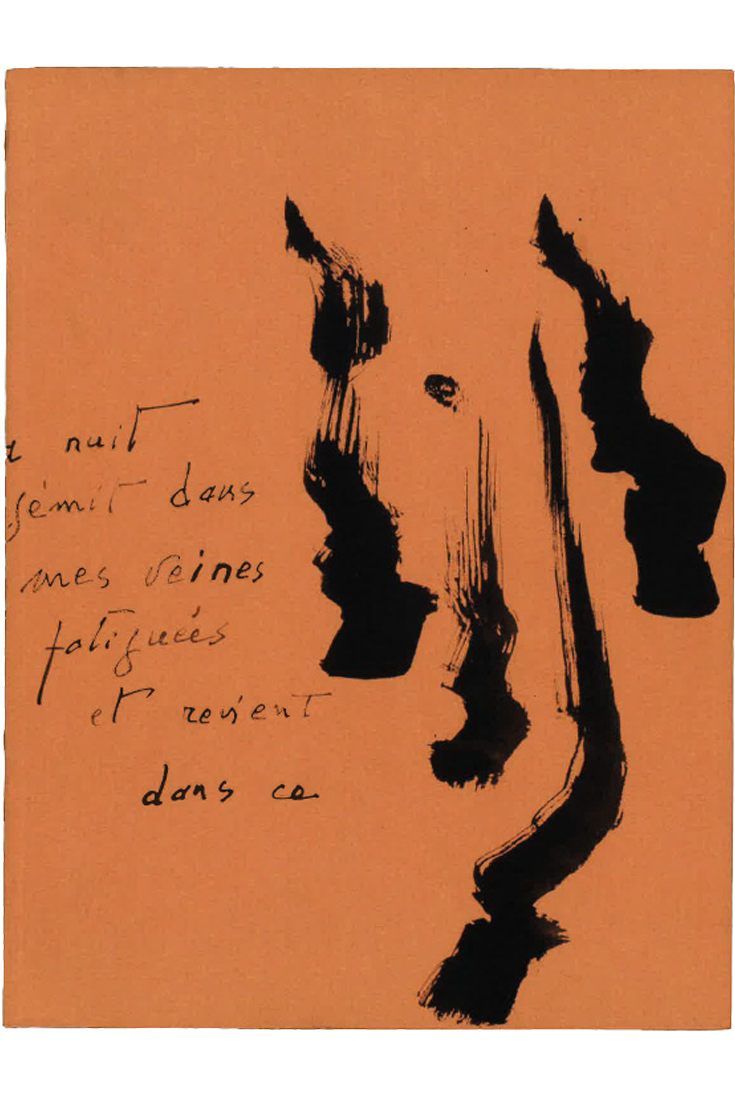 nuit
gémit dans
mes veines
fatiguées
et revient
dans ce